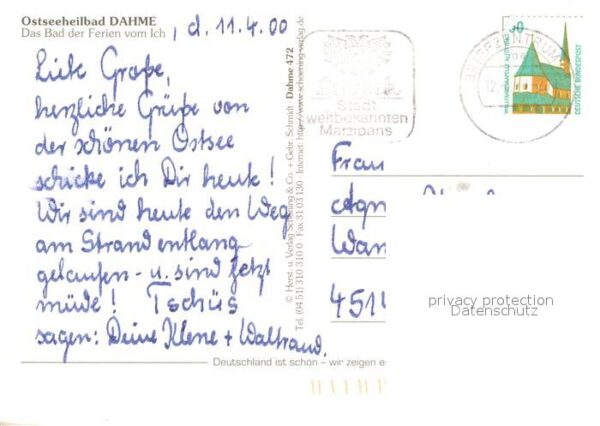 Ostseeheilbad DAHME
Das Bad der Ferien vom Ich, d. 11.4.00
Liebe Große,
herzliche Grüße von
der schönen Ostsee
schicke ich Dir heute!
Wir sind heute den Weg
am Strand entlang
gelaufen - u. sind jetzt
müde! Tschüs
sagen: Deine Klene + Waltraud.
© Herst. u. Verlag Schöning & Co. + Gebr. Schmidt Dahme 472
Tel. (04 51) 310 310 0 Fax 31 03 130 Internet: http://www.schoening-verlag.de
Stadt
weltbekannten
Marzipans
BRIEFZENTRUM
DEUTSCHE BUNDESPOST
Frau
Agn
Wan
451
privacy protection
Datenschutz
Deutschland ist schön – wir zeigen es